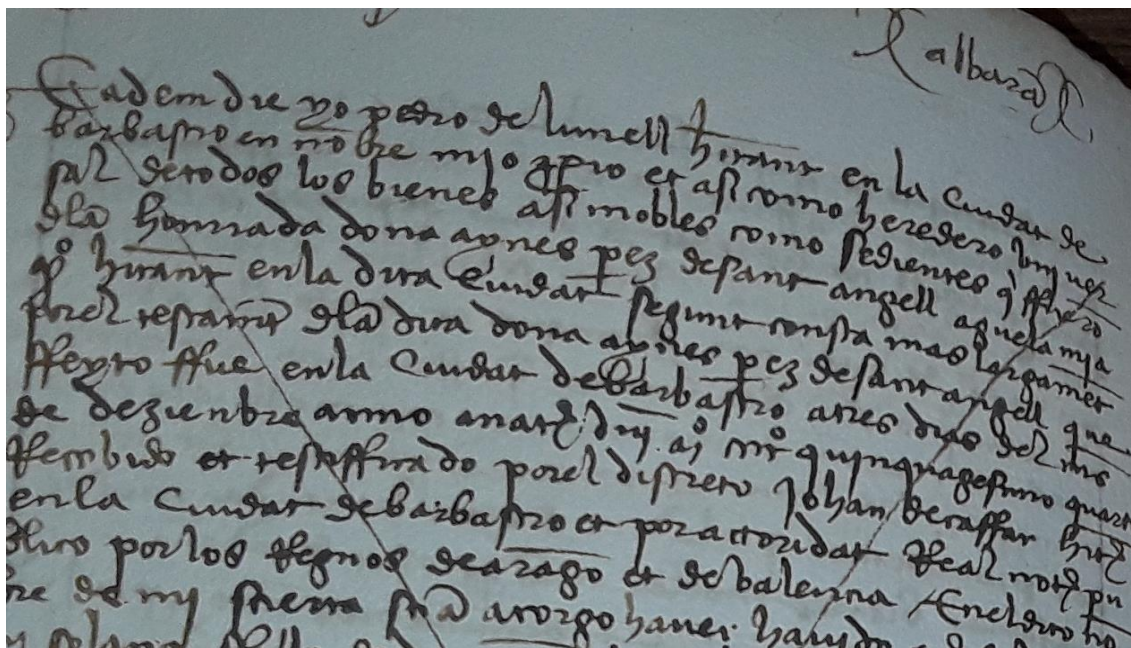 albarã
Eadem die yo pedro de lunell hitant en la Ciudat de
barbastro en nõbre mjo ppio et asi como heredero vniuer
sal de todos los bienes asi mobles como sedientes q̃ ffuero
dla honrrada dona aynes pez de sant angell aguela mja
qº hitant en la dita Ciudat segunt consta mas largamet
por el testamt dla dita dona aynes pez de sant angell que
ffeyto ffue en la Ciudat de barbastro a tres dias del mes
de deziembre anno a natᵗ dnj mº cccº quinquagesimo quart
Recebido et testifficado por el discreto Johan de caffar hitᵗ
en la Ciudat de barbastro et por actoridat Real notᵗ pu
blico por los Regnos de arago et de valencia En el dito no
re de mi scierta sciã atorgo hauer hauido